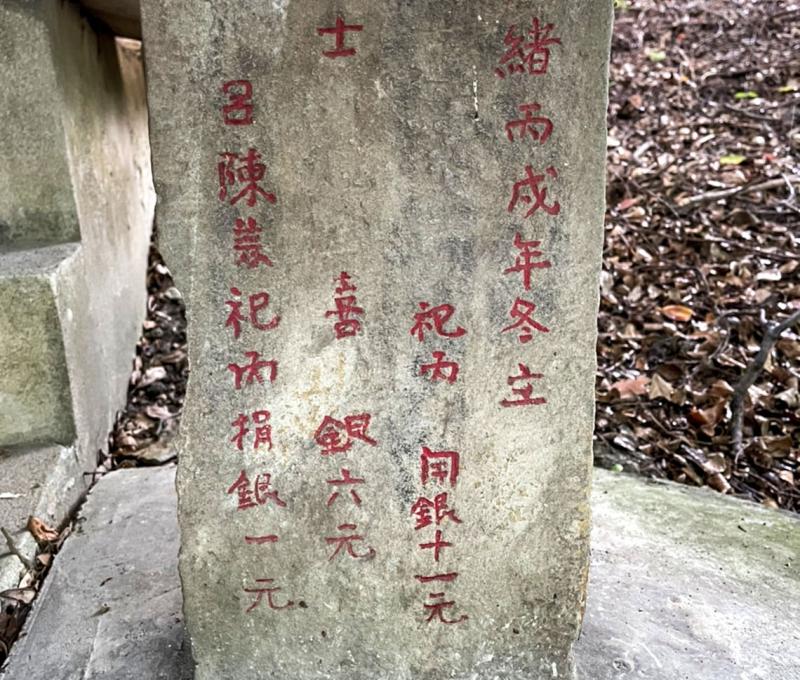 緒丙戌年冬立
祀內開銀十一元
士喜銀六元
呂陳 祀內捐銀一元